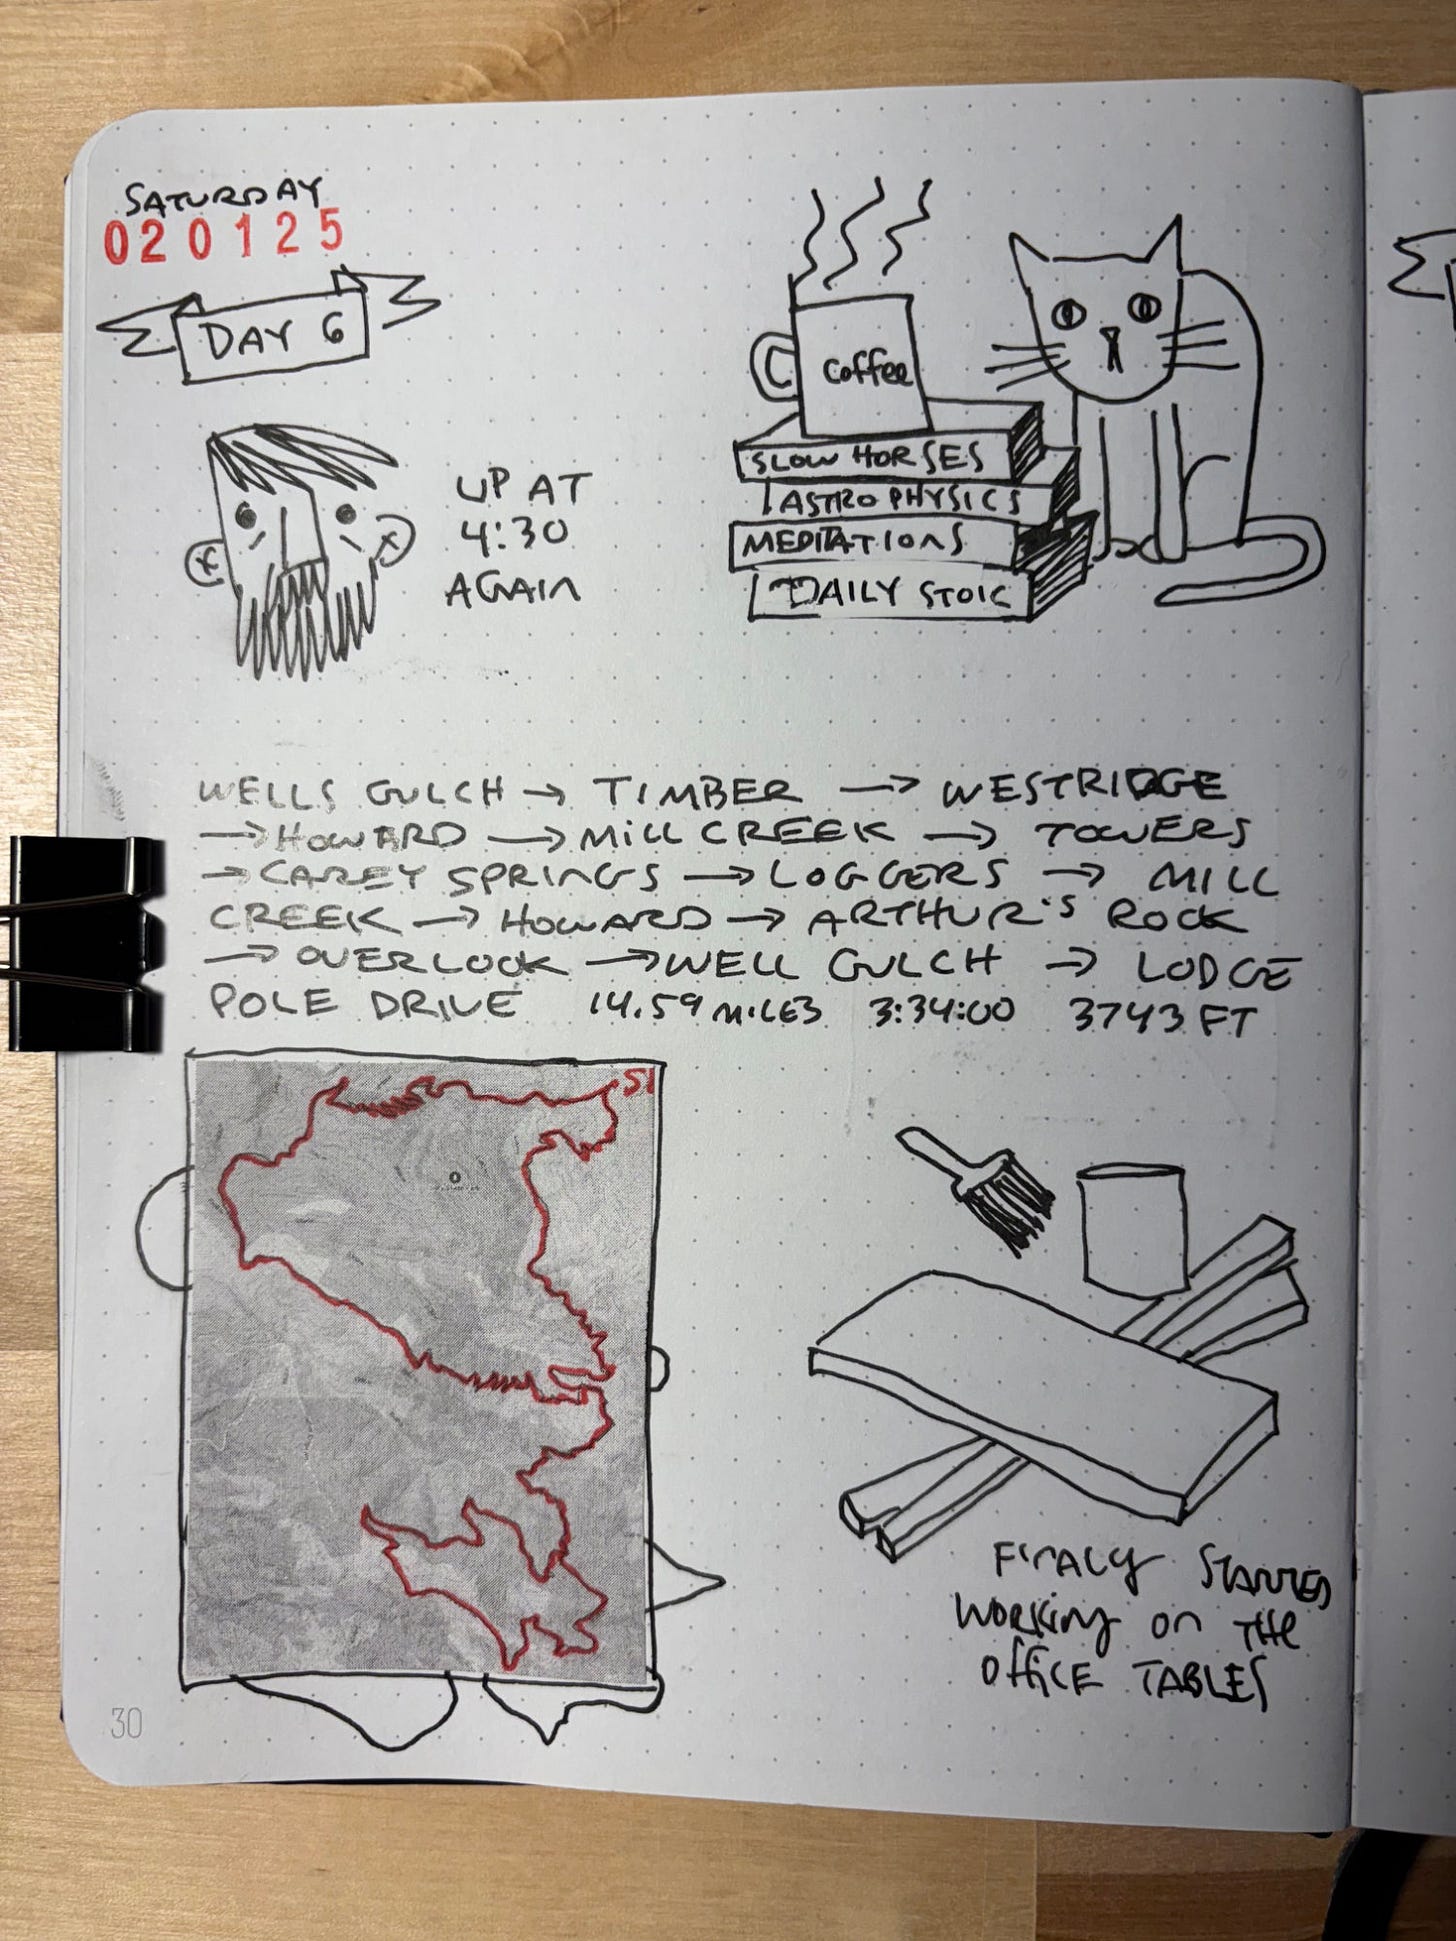 SATURDAY
020125
DAY 6
UP AT
4:30
AGAIN
Coffee
SLOW HORSES
ASTROPHYSICS
MEDITATIONS
DAILY STOIC
WELLS GULCH → TIMBER → WESTRIDGE
→ HOWARD → MILL CREEK → TOWERS
→ CAREY SPRINGS → LOGGERS → MILL
CREEK → HOWARD → ARTHUR'S ROCK
→ OVERLOOK → WELL GULCH → LODGE
POLE DRIVE 14.59 MILES 3:34:00 3743 FT
FINALY STARTED
WORKING ON THE
OFFICE TABLES
30